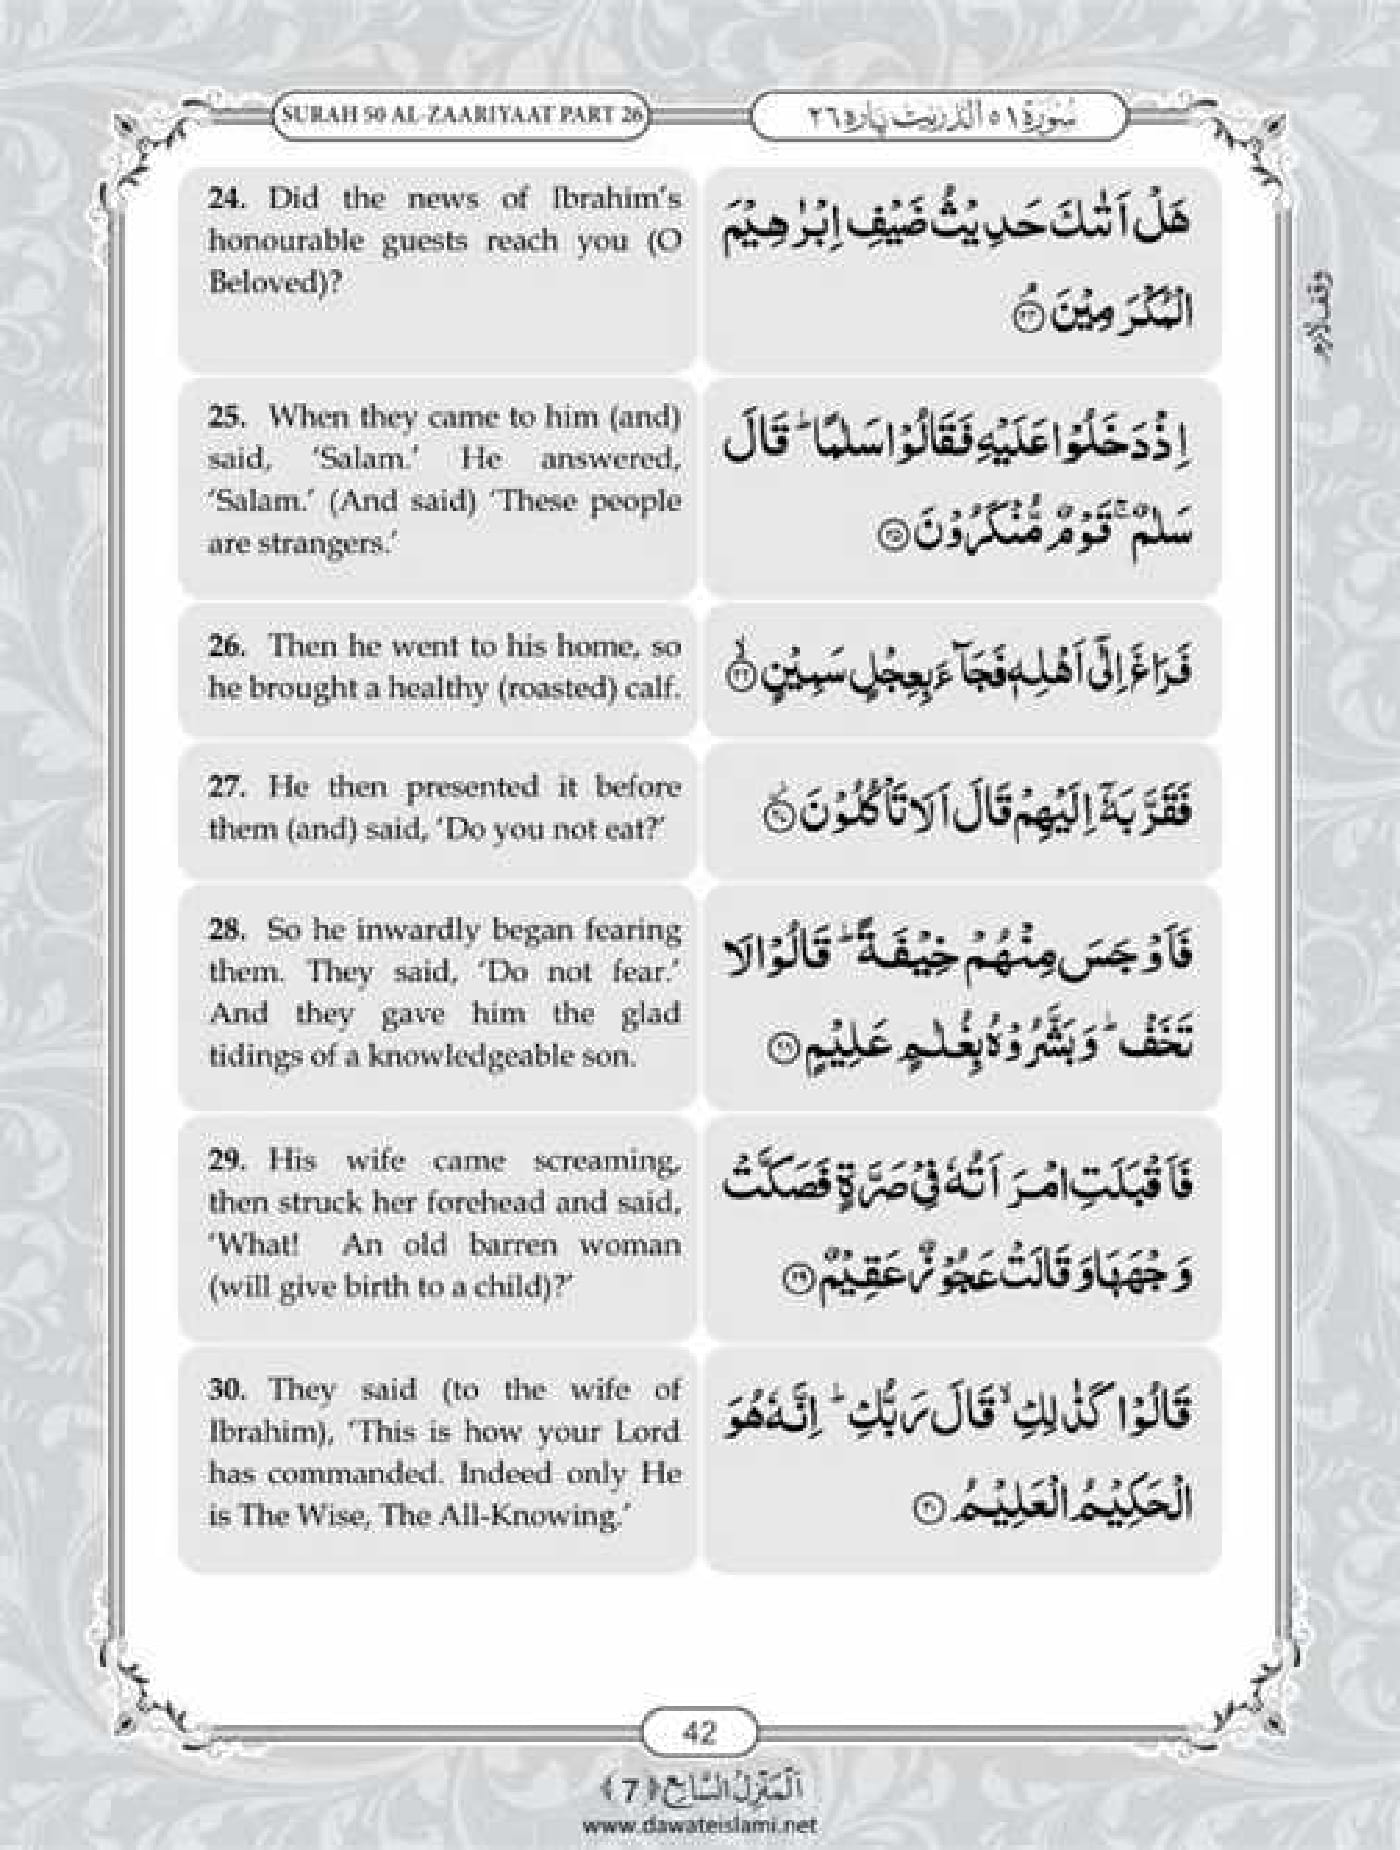 SURAH 50 AL-ZAARIYAAT PART 26
سُوْرَةُ ٥١ الذّٰرِيٰت پارہ ٢٦
24. Did the news of Ibrahim's
honourable guests reach you (O
Beloved)?
هَلْ اَتٰىكَ حَدِيْثُ ضَيْفِ اِبْرٰهِيْمَ
الْمُكْرَمِيْنَ ۘ﴿۲۴﴾
وقف لازم
25. When they came to him (and)
said, ‘Salam.’ He answered,
‘Salam.’ (And said) ‘These people
are strangers.’
اِذْ دَخَلُوْا عَلَيْهِ فَقَالُوْا سَلٰمًا ؕ قَالَ
سَلٰمٌ ۚ قَوْمٌ مُّنْكَرُوْنَ ﴿۲۵﴾
26. Then he went to his home, so
he brought a healthy (roasted) calf.
فَرَاغَ اِلٰۤى اَهْلِهٖ فَجَآءَ بِعِجْلٍ سَمِيْنٍ ۙ﴿۲۶﴾
27. He then presented it before
them (and) said, ‘Do you not eat?’
فَقَرَّبَهٗۤ اِلَيْهِمْ قَالَ اَلَا تَاْكُلُوْنَ ۫﴿۲۷﴾
28. So he inwardly began fearing
them. They said, ‘Do not fear.’
And they gave him the glad
tidings of a knowledgeable son.
فَاَوْجَسَ مِنْهُمْ خِيْفَةً ؕ قَالُوْا لَا
تَخَفْ ؕ وَ بَشَّرُوْهُ بِغُلٰمٍ عَلِيْمٍ ﴿۲۸﴾
29. His wife came screaming,
then struck her forehead and said,
‘What! An old barren woman
(will give birth to a child)?’
فَاَقْبَلَتِ امْرَاَتُهٗ فِيْ صَرَّةٍ فَصَكَّتْ
وَجْهَهَا وَ قَالَتْ عَجُوْزٌ عَقِيْمٌ ﴿۲۹﴾
30. They said (to the wife of
Ibrahim), ‘This is how your Lord
has commanded. Indeed only He
is The Wise, The All-Knowing.’
قَالُوْا كَذٰلِكِ ۙ قَالَ رَبُّكِ ؕ اِنَّهٗ هُوَ
الْحَكِيْمُ الْعَلِيْمُ ﴿۳۰﴾
42
اَلْمَنْزِلُ السَّابِع ﴿7﴾
www.dawateislami.net